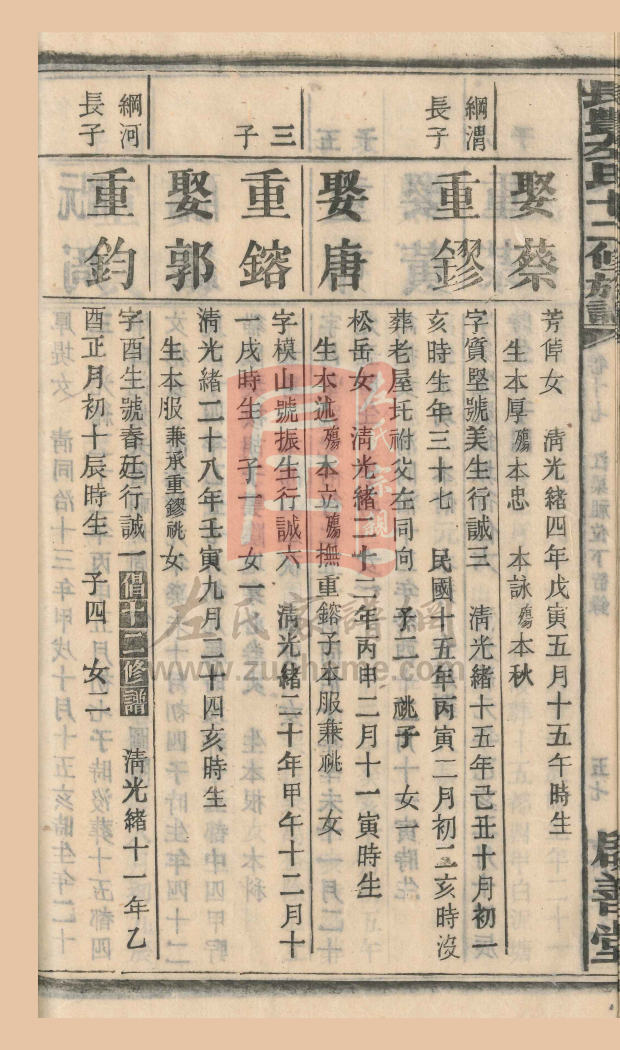 長豐左氏十二修族譜 卷十七 五七 啟善堂
娶蔡
芳倬女 清光緒四年戊寅五月十五午時生
生本厚殤本忠 本詠殤本秋
綱渭長子
重鏐
字質堅號美生行誠三 清光緒十五年己丑十月初一
亥時生年三十七 民國十五年丙寅二月初二亥時沒
葬老屋圫祔父左同向 子二 祧子一 女一
娶唐
松岳女 清光緒二十二年丙申二月十一寅時生
生本述殤本立殤撫重鎔子本服兼祧 女一
三子
重鎔
字模山號振生行誠六 清光緒二十年甲午十二月十
一戌時生 子一 女一
娶郭
清光緒二十八年壬寅九月二十四亥時生
生本服兼承重鏐祧女一
綱河長子
重鈞
字酉生號春廷行誠一倡十二修譜 清光緒十一年乙
酉正月初十辰時生 子四 女一
左氏宗親
左氏家譜網
www.zuohome.com